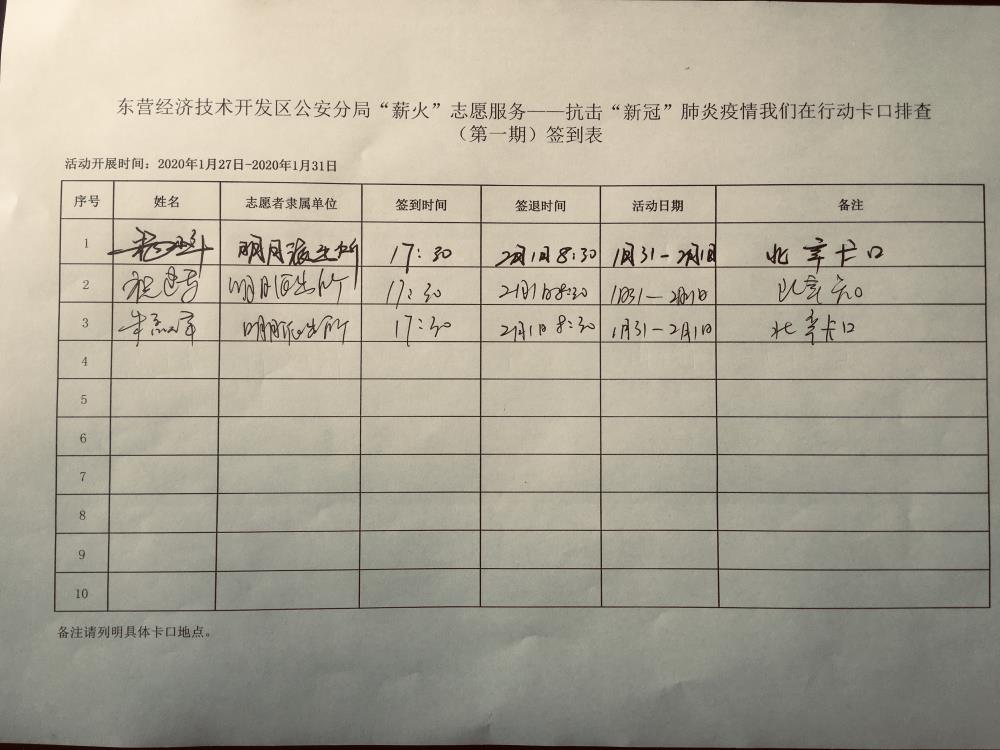 东营经济技术开发区公安分局“薪火”志愿服务——抗击“新冠”肺炎疫情我们在行动卡口排查
（第一期）签到表
活动开展时间：2020年1月27日-2020年1月31日
序号 姓名 志愿者隶属单位 签到时间 签退时间 活动日期 备注
1 明月派出所 17:30 2月1日8:30 1月31-2月1日 北辛卡口
2 明月派出所 17:30 2月1日8:30 1月31-2月1日
3 明月派出所 17:30 2月1日8:30 1月31-2月1日 北辛卡口
4
5
6
7
8
9
10
备注请列明具体卡口地点。